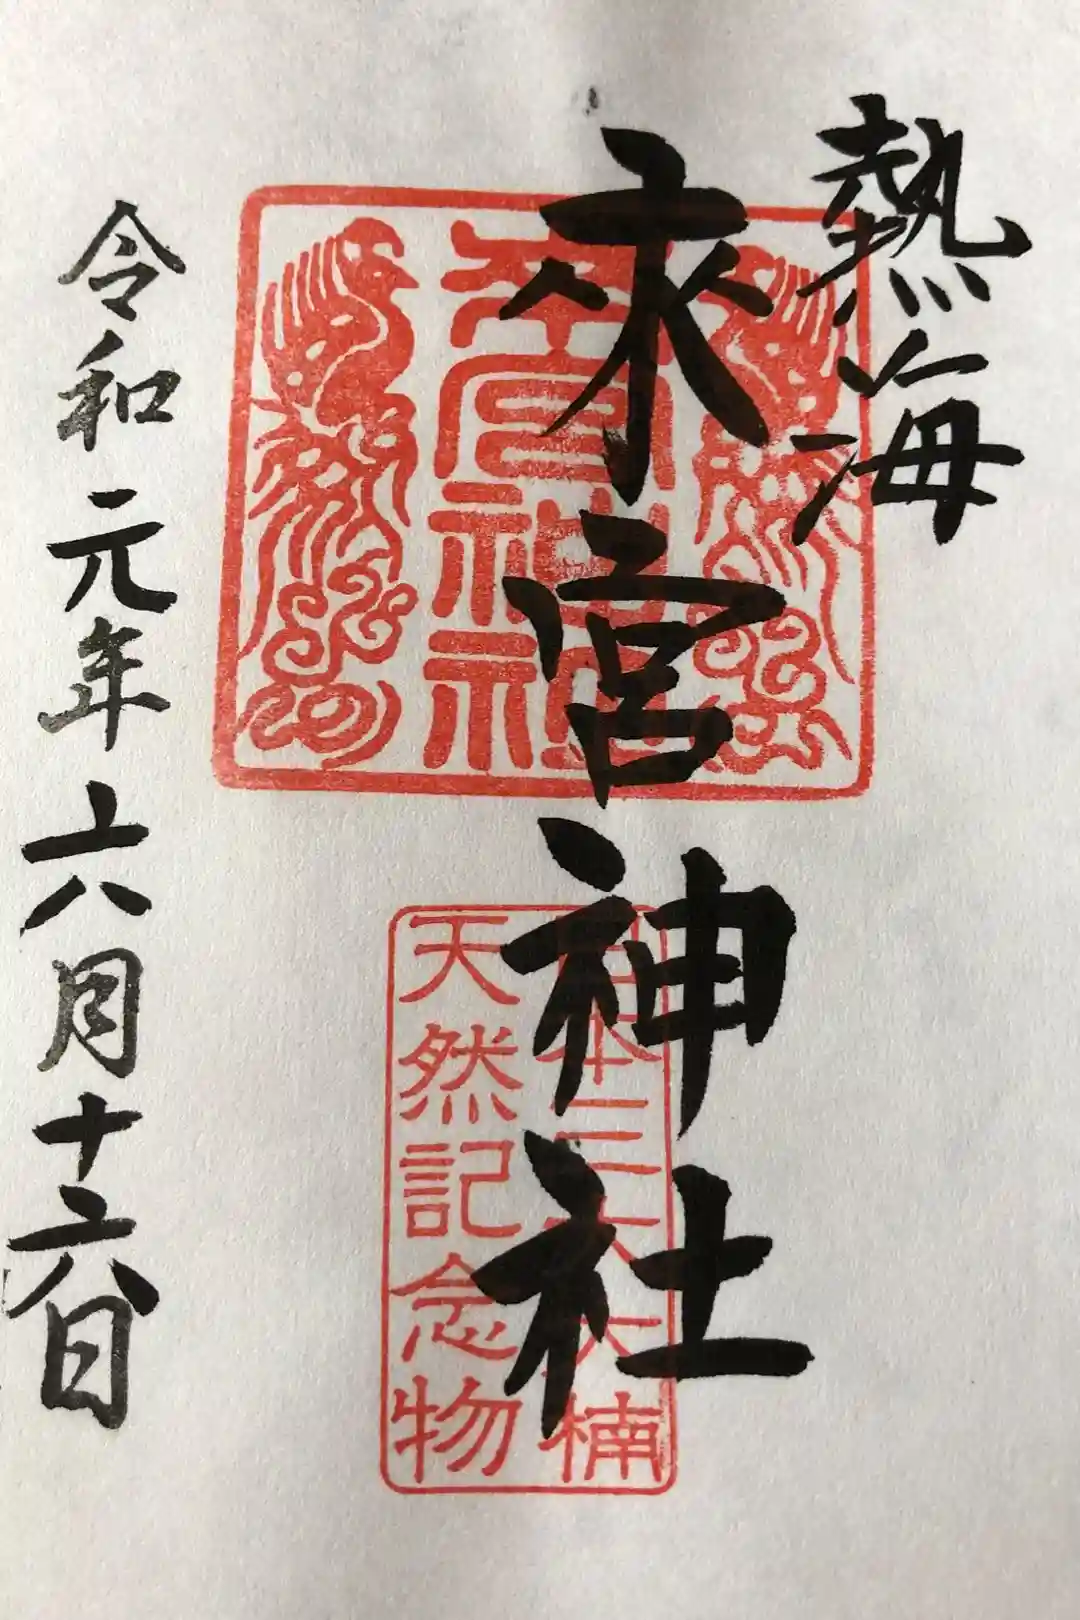 熱海
來宮神社
來宮神社
日本三大大楠
天然記念物
令和元年六月十六日